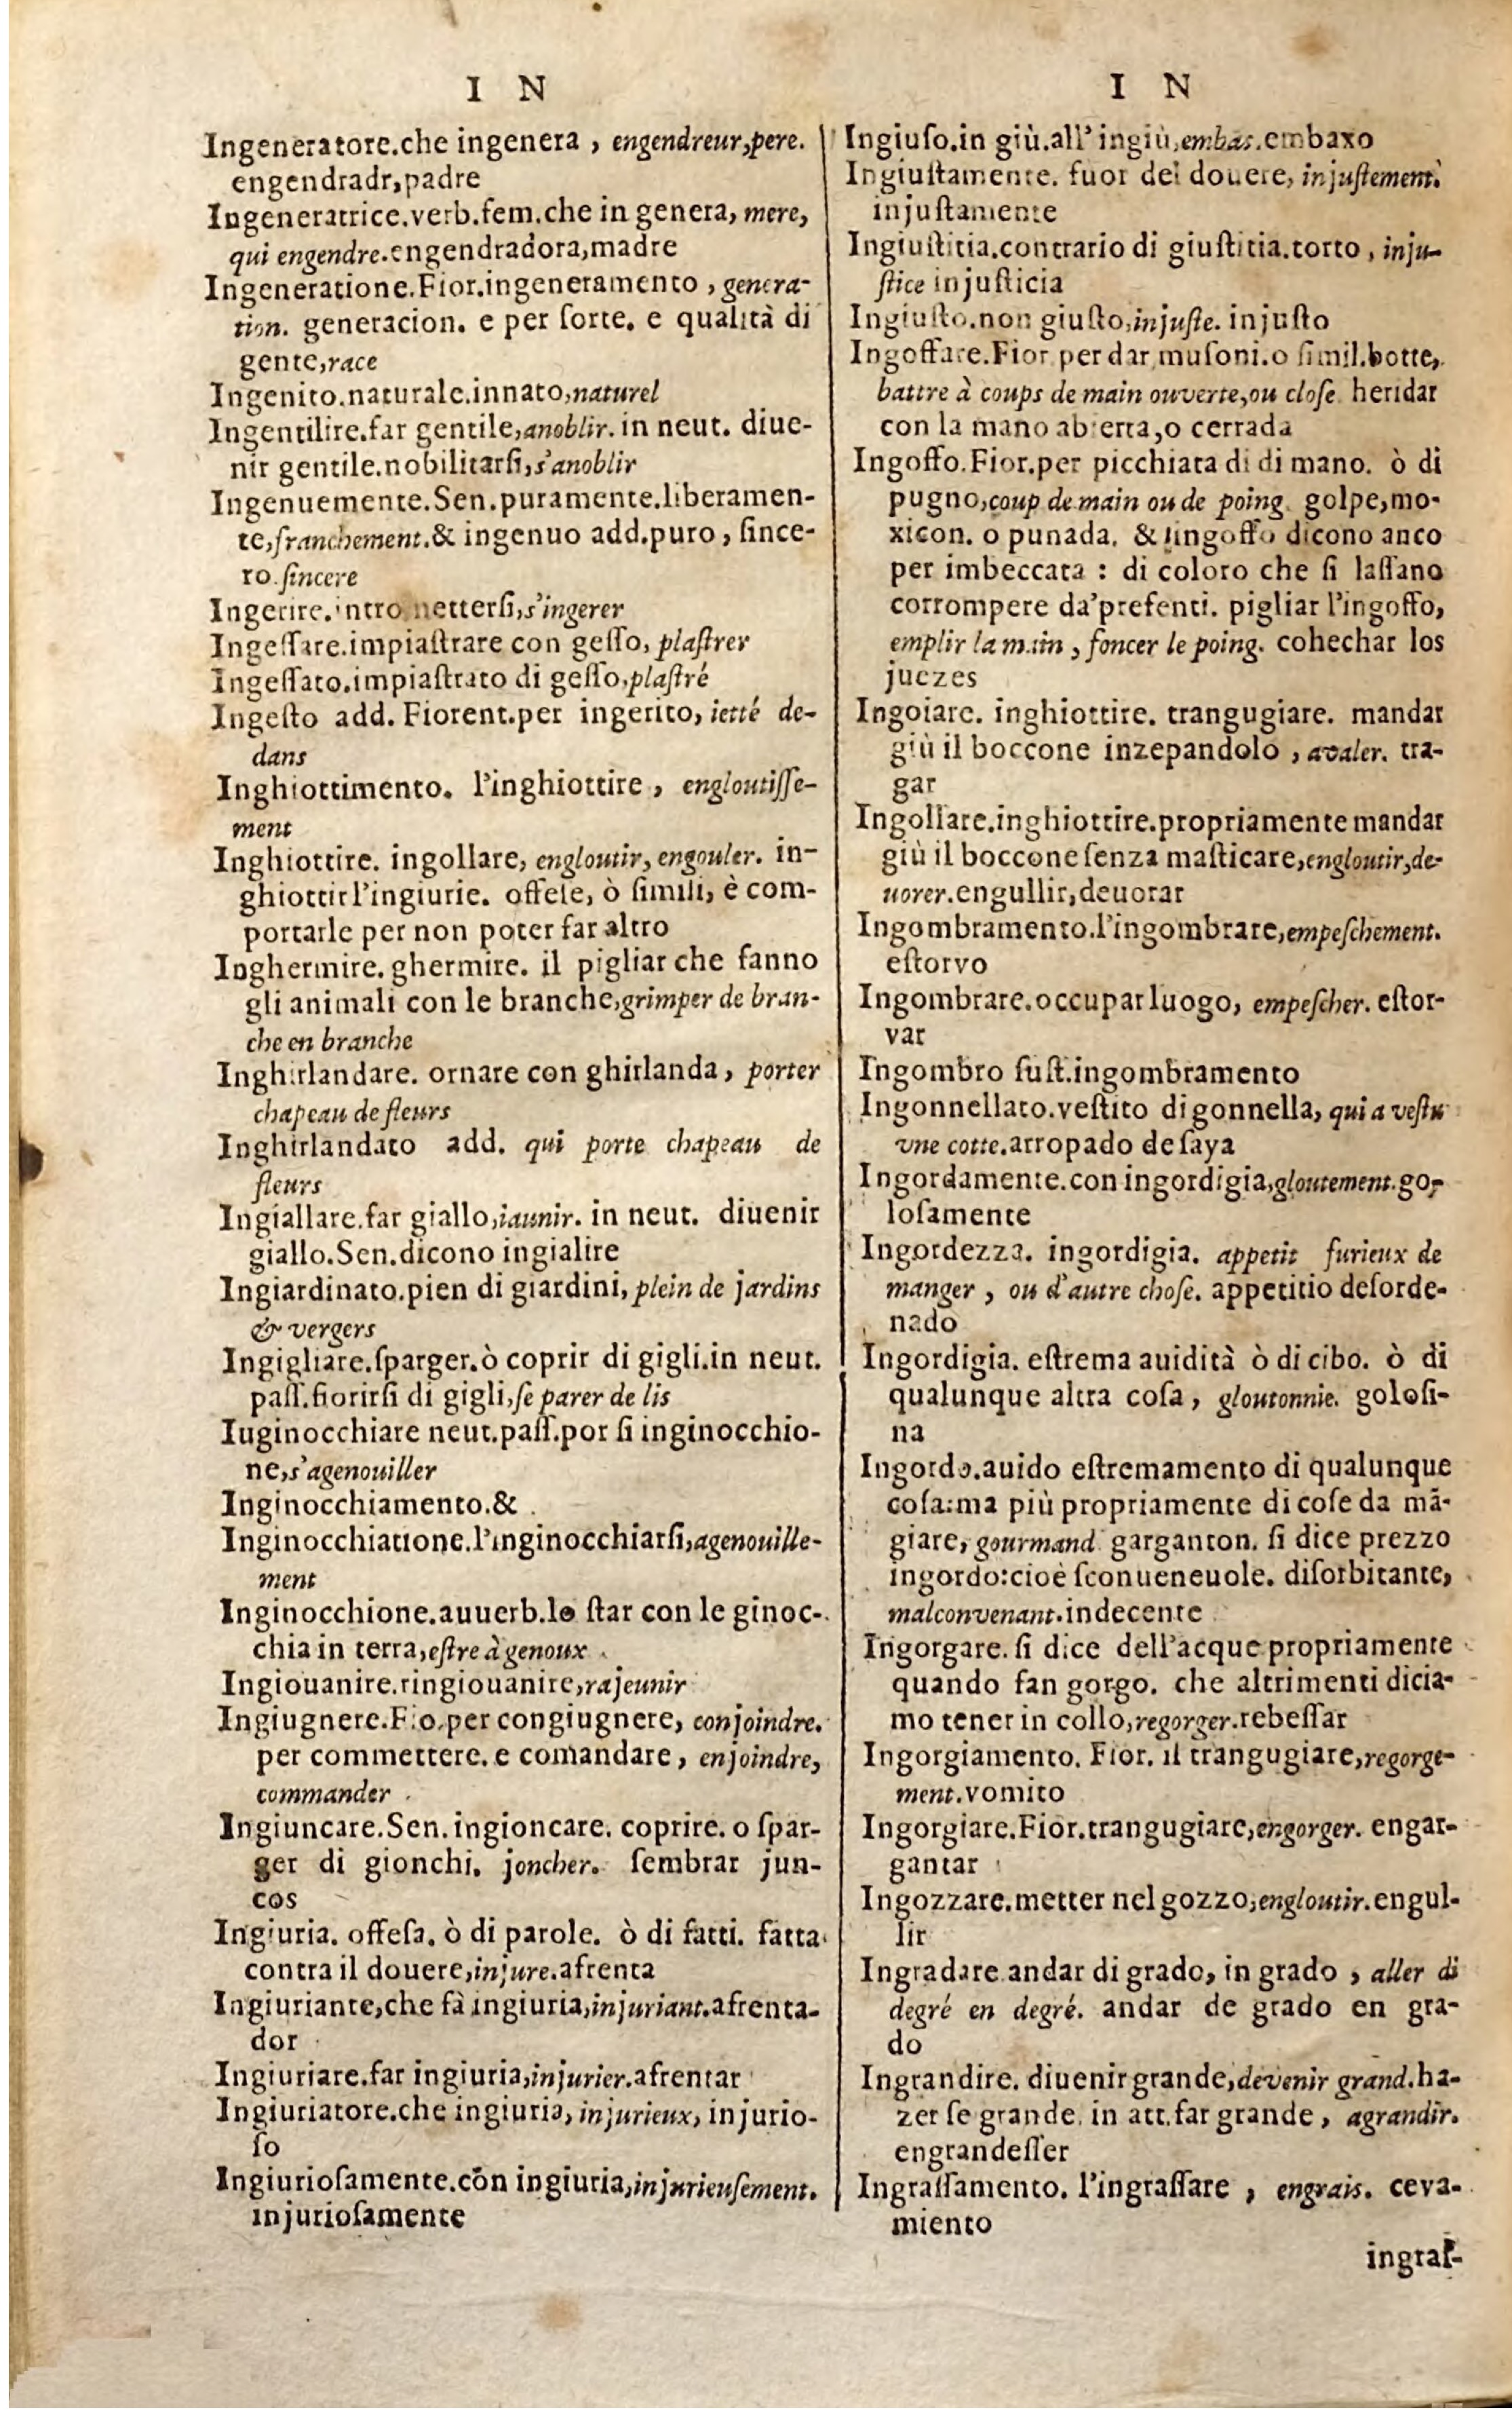 I N
Ingeneratore.che ingenera , engendreur,pere.
engendradr,padre
Ingeneratrice.verb.fem.che in genera, mere,
qui engendre.engendradora,madre
Ingeneratione.Fior.ingeneramento , genera-
tion. generacion. e per ſorte. e qualità di
gente,race
Ingenito.naturale.innato,naturel
Ingentilire.far gentile,anoblir. in neut. diue-
nir gentile.nobilitarſi,s'anoblir
Ingenuemente.Sen.puramente.liberamen-
te,franchement.& ingenuo add.puro , ſince-
ro.ſincere
Ingerire.intromettersſi,s'ingerer
Ingeſſare.impiaſtrare con geſſo, plaſtrer
Ingeſſato.impiaſtrato di geſſo,plaſtré
Ingeſto add. Fiorent.per ingerito, ietté de-
dans
Inghiottimento. l'inghiottire , engloutiſſe-
ment
Inghiottire. ingollare, engloutir, engouler. in-
ghiottir l'ingiurie. offeſe, ò ſimili, è com-
portarle per non poter far altro
Inghermire. ghermire. il pigliar che fanno
gli animali con le branche,grimper de bran-
che en branche
Inghirlandare. ornare con ghirlanda , porter
chapeau de fleurs
Inghirlandato add. qui porte chapeau de
fleurs
Ingiallare.far giallo,iaunir. in neut. diuenir
giallo.Sen.dicono ingialire
Ingiardinato.pien di giardini, plein de jardins
& vergers
Ingigliare.ſparger.ò coprir di gigli.in neut.
paſſ.fiorirſi di gigli,ſe parer de lis
Iuginocchiare neut.paſſ.por ſi inginocchio-
ne,s'agenouiller
Inginocchiamento.&
Inginocchiatione.l'inginocchiarſi,agenouille-
ment
Inginocchione.auuerb.lo ſtar con le ginoc-
chia in terra,eſtre à genoux
Ingiouanire.ringiouanire,rajeunir
Ingiugnere.Fio.per congiugnere, conjoindre.
per commettere. e comandare , enjoindre,
commander
Ingiuncare.Sen. ingioncare. coprire. o ſpar-
ger di gionchi. joncher. ſembrar jun-
cos
Ingiuria. offeſa. ò di parole. ò di fatti. fatta
contra il douere,injure.afrenta
Ingiuriante,che fà ingiuria,injuriant.afrenta-
dor
Ingiuriare.far ingiuria,injurier.afrentar
Ingiuriatore.che ingiuria, injurieux, injurio-
ſo
Ingiurioſamente.con ingiuria,injurieuſement.
injurioſamente
I N
Ingiuſo.in giù.all' ingiù,embas.embaxo
Ingiuſtamente. fuor del douere, injuſtement.
injuſtamente
Ingiuſtitia.contrario di giuſtitia.torto , inju-
ſtice injuſticia
Ingiuſto.non giuſto,injuſte. injuſto
Ingoffare.Fior per dar muſoni.o ſimil.botte,
battre à coups de main ouverte,ou cloſe. heridar
con la mano abierta,o cerrada
Ingoffo.Fior.per picchiata di di mano. ò di
pugno,coup de main ou de poing. golpe,mo-
xicon. o punada. & ingoffo dicono anco
per imbeccata : di coloro che ſi laſſano
corrompere da'preſenti. pigliar l'ingoffo,
emplir la main , foncer le poing. cohechar los
juezes
Ingoiare. inghiottire. trangugiare. mandar
giù il boccone inzepandolo , avaler. tra-
gar
Ingollare.inghiottire.propriamente mandar
giù il boccone ſenza maſticare,engloutir,de-
uorer.engullir,deuorar
Ingombramento.l'ingombrare,empeſchement.
eſtorvo
Ingombrare.occupar luogo, empeſcher. eſtor-
var
Ingombro ſuſt.ingombramento
Ingonnellato.veſtito di gonnella, qui a veſtu
vne cotte.arropado de ſaya
Ingordamente.con ingordigia,gloutement.go-
loſamente
Ingordezza. ingordigia. appetit furieux de
manger , ou d'autre choſe. appetitio deſorde-
nado
Ingordigia. eſtrema auidità ò di cibo. ò di
qualunque altra coſa , gloutonnie. goloſi-
na
Ingordo.auido eſtremamento di qualunque
coſa:ma più propriamente di coſe da mā-
giare, gourmand garganton. ſi dice prezzo
ingordo:cioè ſconueneuole. diſorbitante,
malconvenant.indecente
Ingorgare. ſi dice dell'acque propriamente
quando fan gorgo. che altrimenti dicia-
mo tener in collo,regorger.rebeſſar
Ingorgiamento. Fior. il trangugiare,regorge-
ment.vomito
Ingorgiare.Fior.trangugiare,engorger. engar-
gantar
Ingozzare.metter nel gozzo,engloutir.engul-
lir
Ingradare.andar di grado, in grado , aller di
degré en degré. andar de grado en gra-
do
Ingrandire. diuenir grande,devenir grand.ha-
zer ſe grande. in att.far grande , agrandir.
engrandeſſer
Ingraſſamento. l'ingraſſare , engrais. ceva-
miento
ingraſ-